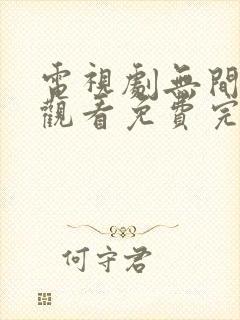 電視劇無間
觀看免費完
何守君